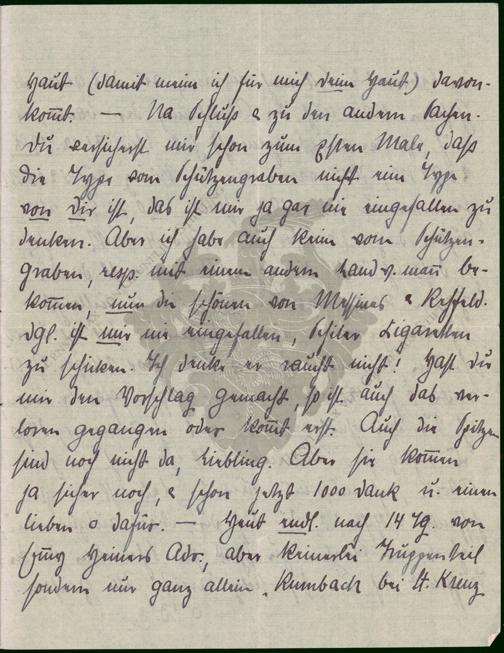 Haut (damit meine ich für mich deine Haut) davon-
kom̄t. — Na Schluß & zu den andern Sachen.
Du versicherst mir schon zum xsten Male, daß
die Type vom Schützengraben nicht eine Type
von Dir ist, das ist mir ja gar nie eingefallen zu
denken. Aber ich habe auch keine vom Schützen-
graben, resp. mit einem andern Landw.man̄ be-
kom̄en, nur die schönen von Messines &
dgl. ist mir nie eingefallen, Cigaretten
zu schicken. Ich denke er raucht nicht! Hast Du
mir den Vorschlag gemacht, so ist auch das ver-
loren gegangen oder kom̄t erst. Auch die Spitzen
sind noch nicht da, Liebling. Aber sie kom̄en
ja sicher noch, & schon jetzt 1000 Dank u. einen
lieben o dafür. — Heut endl. nach 14 Tg. von
Heiners Adr., aber keinerlei Truppenteil
sondern nur ganz allein „Rumbach bei St. Kreuz